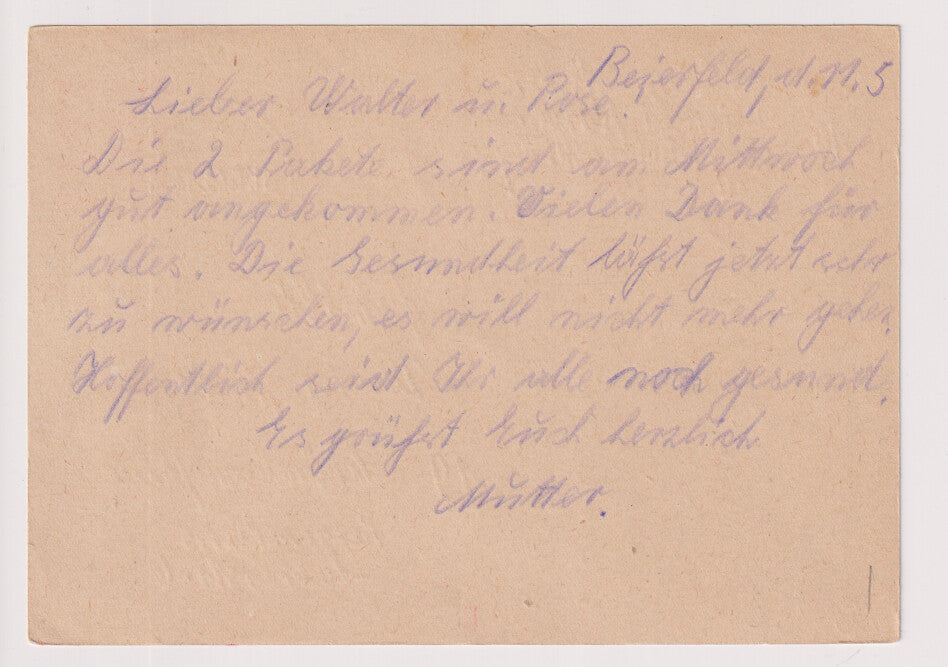 Beierfeld, d. 11. 5
Lieber Walter u. Rose!
Die 2 Pakete sind am Mittwoch
gut angekommen. Vielen Dank für
alles. Die Gesundheit läßt jetzt sehr
zu wünschen, es will nicht mehr gehen.
Hoffentlich seid Ihr alle noch gesund.
Es grüßt Euch herzlich
Mutter.